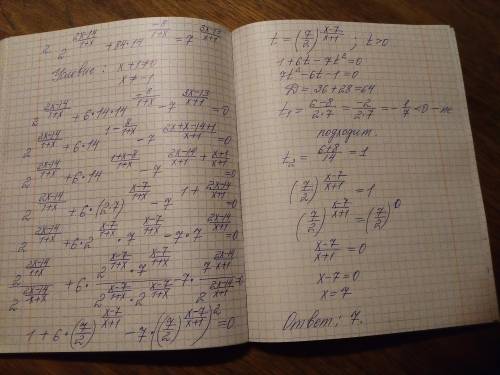 2^((2x-14)/(1+x)) + 84·14^(-8/(1+x)) = 7^((3x-13)/(x+1))
Условие: x+1≠0
x≠-1
2^((2x-14)/(1+x)) + 6·14·14^(-8/(1+x)) - 7^((3x-13)/(x+1)) = 0
2^((2x-14)/(1+x)) + 6·14^(1-8/(1+x)) - 7^((2x+x-14+1)/(x+1)) = 0
2^((2x-14)/(1+x)) + 6·14^((1+x-8)/(1+x)) - 7^((2x-14)/(x+1)+(x+1)/(x+1)) = 0
2^((2x-14)/(1+x)) + 6·(2·7)^((x-7)/(1+x)) - 7^(1+(2x-14)/(1+x)) = 0
2^((2x-14)/(1+x)) + 6·2^((x-7)/(1+x))·7^((x-7)/(1+x)) - 7·7^((2x-14)/(1+x)) = 0
2^((2x-14)/(1+x))/2^((2x-14)/(1+x)) + 6·2^((x-7)/(1+x))·7^((x-7)/(1+x))/(2^((x-7)/(1+x))·2^((x-7)/(x+1))) - 7·7^((2x-14)/(x+1))/2^((2x-14)/(x+1)) = 0
1+6·(7/2)^((x-7)/(x+1)) - 7·((7/2)^((x-7)/(x+1)))^2 = 0
t = (7/2)^((x-7)/(x+1)); t>0
1+6t-7t²=0
7t²-6t-1=0
D=36+28=64
t₁=(6-8)/(2·7)=-2/(2·7)=-1/7<0 - не
подходит.
t₂=(6+8)/14=1
(7/2)^((x-7)/(x+1))=1
(7/2)^((x-7)/(x+1))=(7/2)^0
(x-7)/(x+1)=0
x-7=0
x=7
Ответ: 7.